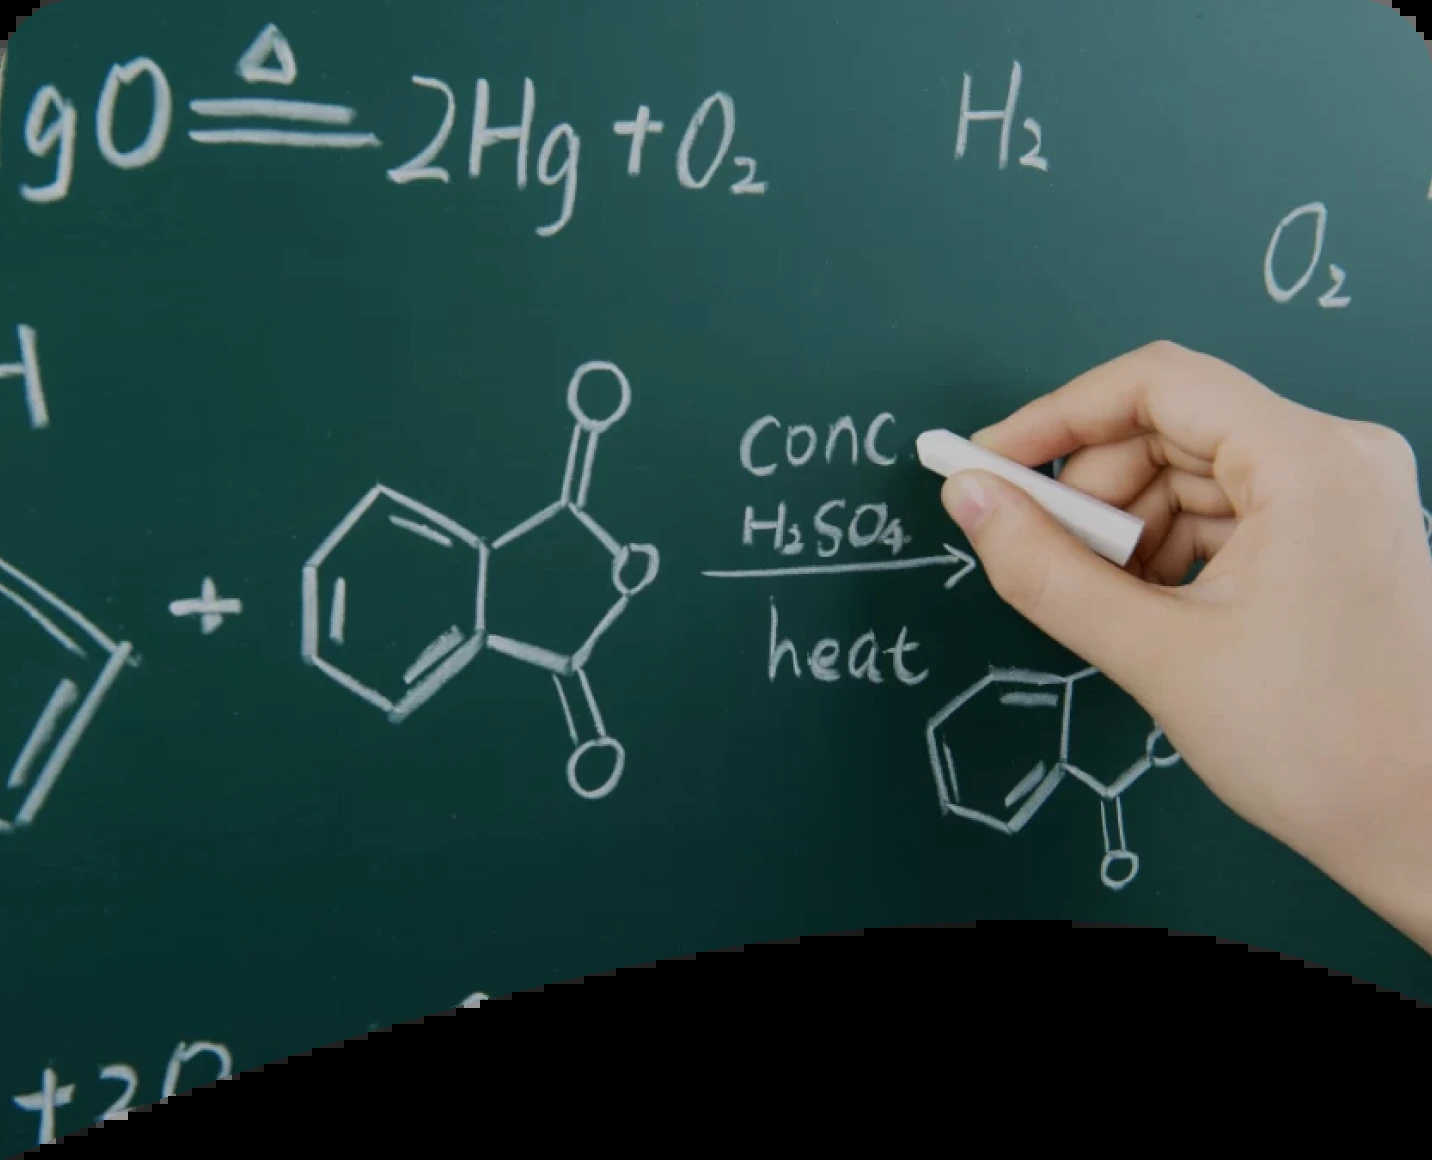 gO ≜ 2Hg + O₂
H₂
O₂
H
+
O
O
O
conc.
H₂SO₄
heat
O
O
+ 2